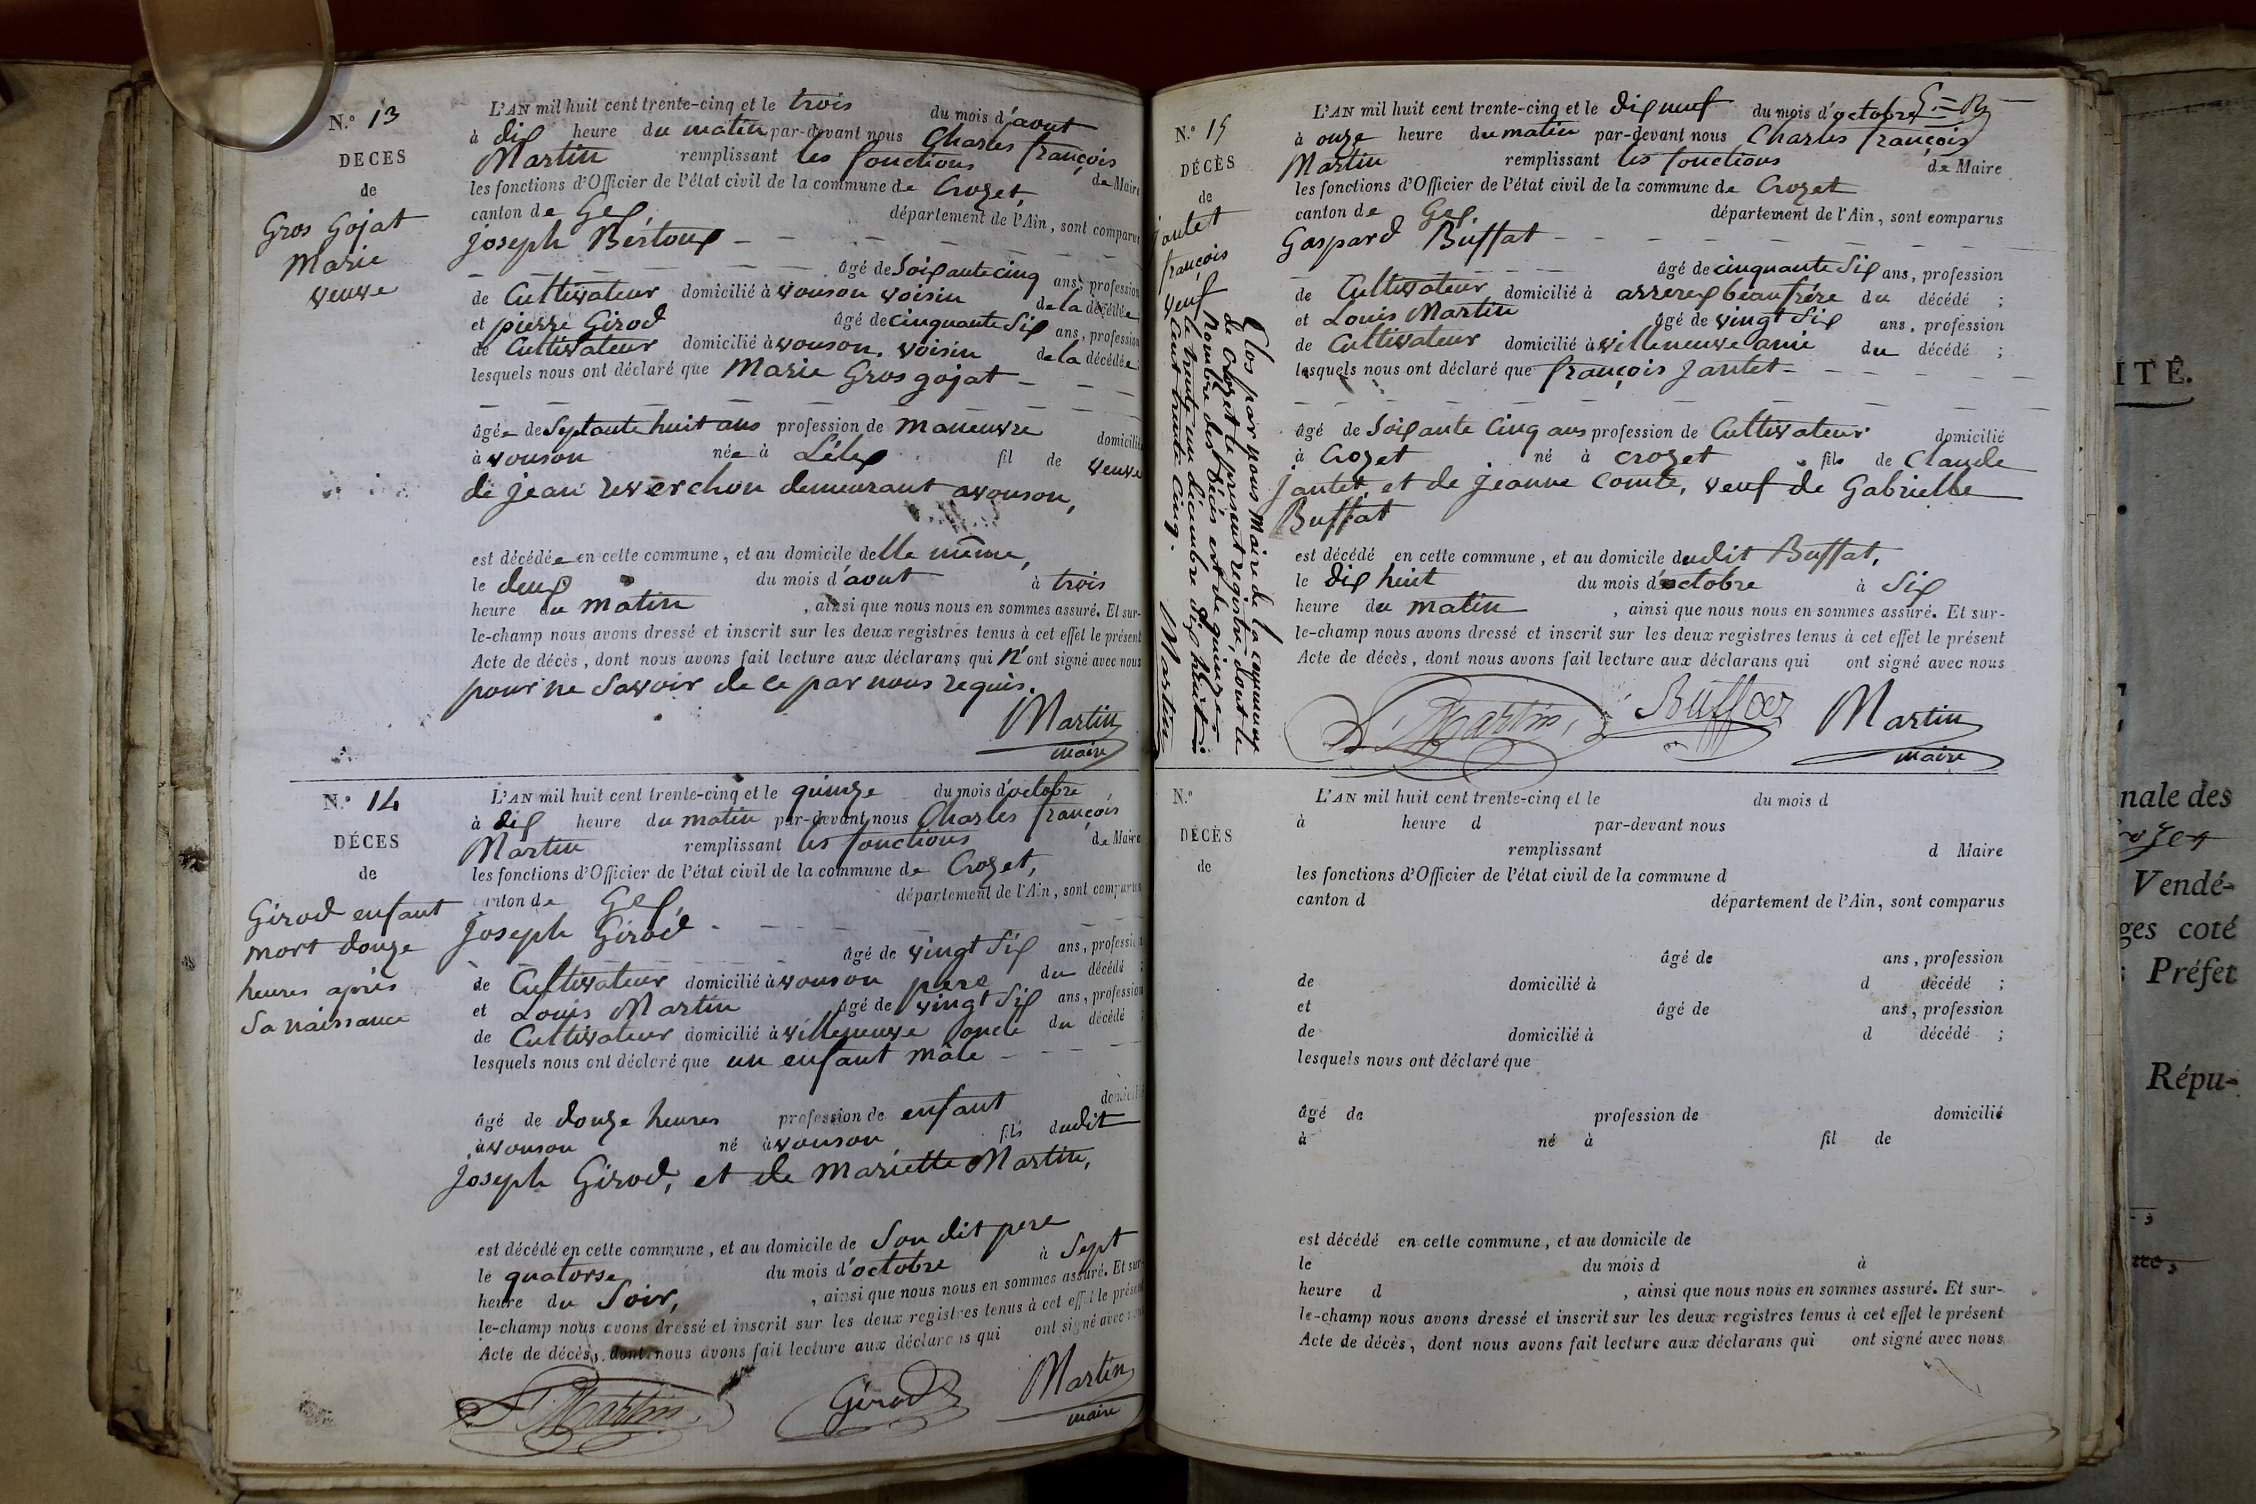 N.° 13
DECES
de
Gros Gojat
Marie
veuve
L'AN mil huit cent trente-cinq et le trois du mois d'aout
à dix heure du matin par-devant nous Charles françois
Martin remplissant les fonctions de Maire
les fonctions d'Officier de l'état civil de la commune de Crozet,
canton de Gex, département de l'Ain, sont comparus
joseph Bertoux
âgé de Soixante cinq ans, profession
de Cultivateur domicilié à vouson voisin de la décédée
et pierre Girod âgé de cinquante Six ans, profession
de Cultivateur domicilié à vouson, voisin de la décédée
lesquels nous ont déclaré que Marie Gros gojat
âgée de Septante huit ans profession de maneuvre domicilié
à vouson née à Lélex fil de veuve
de jean reverchon demeurant avouson,
est décédée en cette commune, et au domicile delle même,
le deux du mois d'aout à trois
heure du matin, ainsi que nous nous en sommes assuré. Et sur-
le-champ nous avons dressé et inscrit sur les deux registres tenus à cet effet le présent
Acte de décès, dont nous avons fait lecture aux déclarans qui n'ont signé avec nous
pour ne Savoir de ce par nous requis.
Martin
maire
N.° 14
DÉCES
de
Girod enfant
mort douze
heures après
Sa naissance
L'AN mil huit cent trente-cinq et le quinze du mois d'octobre
à dix heure du matin par-devant nous Charles françois
Martin remplissant les fonctions de Maire
les fonctions d'Officier de l'état civil de la commune de Crozet,
canton de Gex, département de l'Ain, sont comparus
Joseph Girod
âgé de vingt Six ans, profession
de Cultivateur domicilié à vouson père du décédé ;
et Louis Martin âgé de vingt Six ans, profession
de Cultivateur domicilié à villeneuve oncle du décédé ;
lesquels nous ont déclaré que un enfant mâle
âgé de douze heures profession de enfant domicilié
à vouson né à vouson fils dudit
Joseph Girod, et de Mariette Martin,
est décédé en cette commune, et au domicile de Son dit pere
le quatorse du mois d'octobre à Sept
heure du Soir, , ainsi que nous nous en sommes assuré. Et sur-
le-champ nous avons dressé et inscrit sur les deux registres tenus à cet effet le présent
Acte de décès, dont nous avons fait lecture aux déclarans qui ont signé avec nous
L Martin
Girod
Martin
maire
N.° 15
DÉCÈS
de
jantet
françois
veuf
Clos par nous Maire de la commune
de Crozet le present registre, dont le
Nombre des Décès est de quinze,
le trente un décembre mil huit
cent trente cinq.
Martin
L'AN mil huit cent trente-cinq et le dix neuf du mois d'octobre
à onze heure du matin par-devant nous Charles françois
Martin remplissant les fonctions de Maire
les fonctions d'Officier de l'état civil de la commune de Crozet
canton de Gex, département de l'Ain, sont comparus
Gaspard Buffat
âgé de cinquante Six ans, profession
de Cultivateur domicilié à beaufrére du décédé ;
et Louis Martin âgé de vingt Six ans, profession
de Cultivateur domicilié à villeneuve ami du décédé ;
lesquels nous ont déclaré que françois Jantet
âgé de Soixante Cinq ans profession de Cultivateur domicilié
à Crozet né à crozet fils de Claude
jantet, et de jeanne Comte, veuf de Gabrielle
Buffat
est décédé en cette commune, et au domicile dudit Buffat,
le dix huit du mois d'octobre à Six
heure du matin , ainsi que nous nous en sommes assuré. Et sur-
le-champ nous avons dressé et inscrit sur les deux registres tenus à cet effet le présent
Acte de décès, dont nous avons fait lecture aux déclarans qui ont signé avec nous
L Martin
Buffat
Martin
maire
N.°
DÉCÈS
de
L'AN mil huit cent trente-cinq et le du mois d
à heure d par-devant nous
remplissant d Maire
les fonctions d'Officier de l'état civil de la commune d
canton d département de l'Ain, sont comparus
âgé de ans, profession
de domicilié à d décédé ;
et âgé de ans, profession
de domicilié à d décédé ;
lesquels nous ont déclaré que
âgé de profession de domicilié
à né à fil de
est décédé en cette commune, et au domicile de
le du mois d à
heure d , ainsi que nous nous en sommes assuré. Et sur-
le-champ nous avons dressé et inscrit sur les deux registres tenus à cet effet le présent
Acte de décès, dont nous avons fait lecture aux déclarans qui ont signé avec nous
ITÉ.
nale des
Vendé-
ges coté
Préfet
Répu-